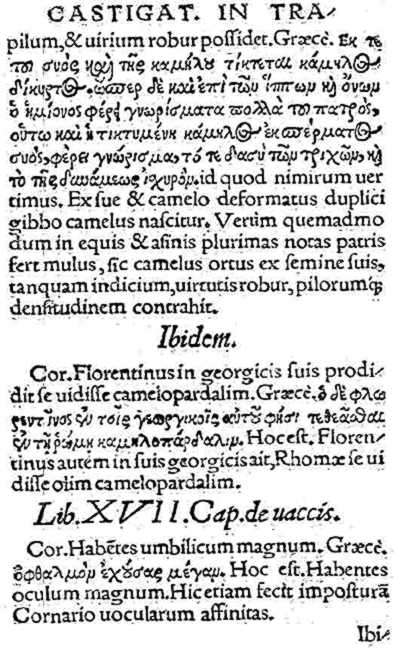 CASTIGAT. IN TRA-
pilum, & uirium robur possidet. Græcè. Ἐκ τε
του συὸς καὶ τῆς καμήλου τίκτεται κάμηλος
δίκυρτος. ὥσπερ δὲ καὶ ἐπὶ τῶν ἵππων καὶ ὄνων
ὁ ἡμίονος φέρει γνωρίσματα πολλὰ τοῦ πατρὸς,
οὕτω καὶ ἡ τικτομένη κάμηλος ἐκ σπέρματος
συὸς, φέρει γνώρισμα, τό τε δασὺ τῶν τριχῶν, καὶ
τὸ τῆς δυνάμεως ἰσχυρόν. id quod nimirum uer
timus. Ex sue & camelo deformatus duplici
gibbo camelus nascitur. Verùm quemadmo
dum in equis & asinis plurimas notas patris
fert mulus, sic camelus ortus ex semine suis,
tanquam indicium, uirtutis robur, pilorumq;
densitudinem contrahit.
Ibidem.
Cor. Florentinus in georgicis suis prodi-
dit se uidisse camelopardalim. Græcè. ὁ δὲ φλω
ρεντῖνος ἐν τοῖς γεωργικοῖς αὐτοῦ φησι τεθεᾶσθαι
ἐν τῇ ῥώμῃ καμηλοπάρδαλιν. Hoc est. Floren-
tinus autem in suis georgicis ait, Rhomæ se ui
disse olim camelopardalim.
Lib. XVII. Cap. de uaccis.
Cor. Habẽtes umbilicum magnum. Græcè.
ὀφθαλμὸν ἐχούσας μέγαν. Hoc est. Habentes
oculum magnum. Hic etiam fecit imposturã
Cornario uocularum affinitas.
Ibi-